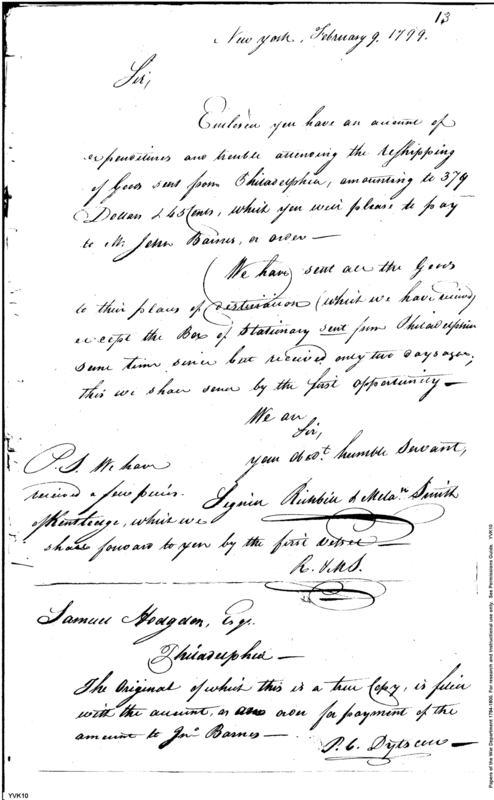 13
New York, February 9. 1799.
Sir,
Enclosed you have an account of
expenditures and trouble attending the reshipping
of Goods sent from Philadelphia, amounting to 379
Dollars & 45 Cents, which you will please to pay
to Mr. John Barnes, or order —
(We have) sent all the Goods
to their places of destination (which we have received)
except the Box of Stationary sent from Philadelphia
some time since but received only two days ago,
this we shall send by the first opportunity —
We are
Sir,
your obedt. humble Servant,
P.S. We have
received a few pieces
of Kentledge, which we
shall forward to you by the first Vessel —
Signed & Melan. Smith
R. & M.S.
Samuel Hodgdon, Esqr.
Philadelphia —
The Original of which this is a true Copy, is filed
with the account, an order for payment of the
amount to Jno. Barnes —
P. C.
YVK10
Papers of the War Department 1784-1800. For research and instructional use only. See Permissions Guide. YVK10